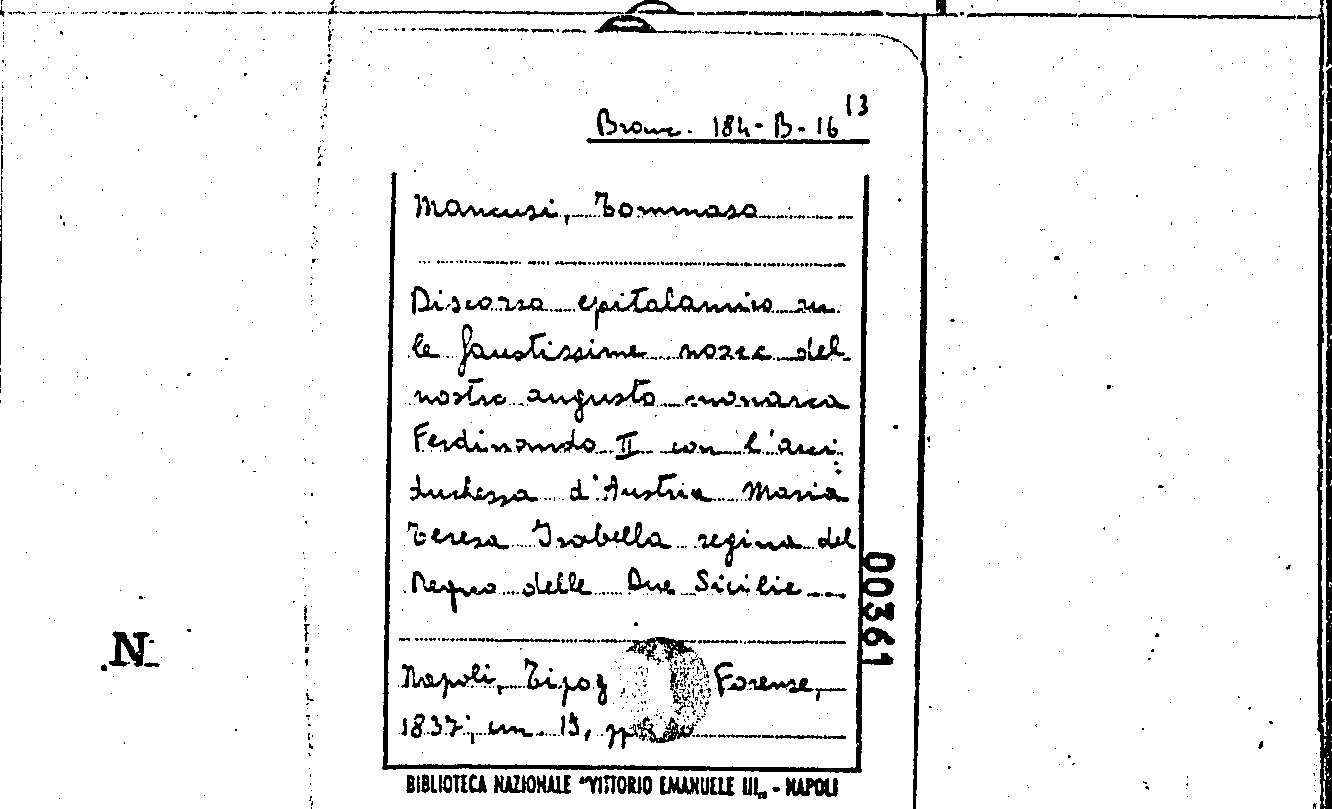 Branc. 184-B-16 13
Mancusi, Tommaso
Discorso epitalamico su
le faustissime nozze del
nostro augusto monarca
Ferdinando II con l'arci
duchessa d'Austria Maria
Teresa Isabella regina del
Regno delle Due Sicilie
00361
N
Napoli, Tipog Forense,
1837, cm. 19, pp.
BIBLIOTECA NAZIONALE "VITTORIO EMANUELE III„ - NAPOLI